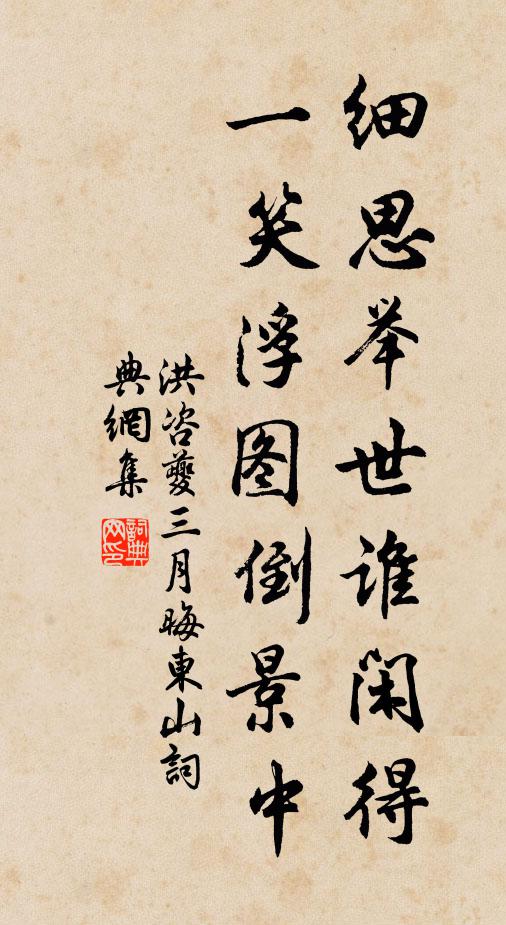 细思举世谁闲得
一笑浮图倒景中
洪咨夔三月晦東山詞
典網集
詞典网印